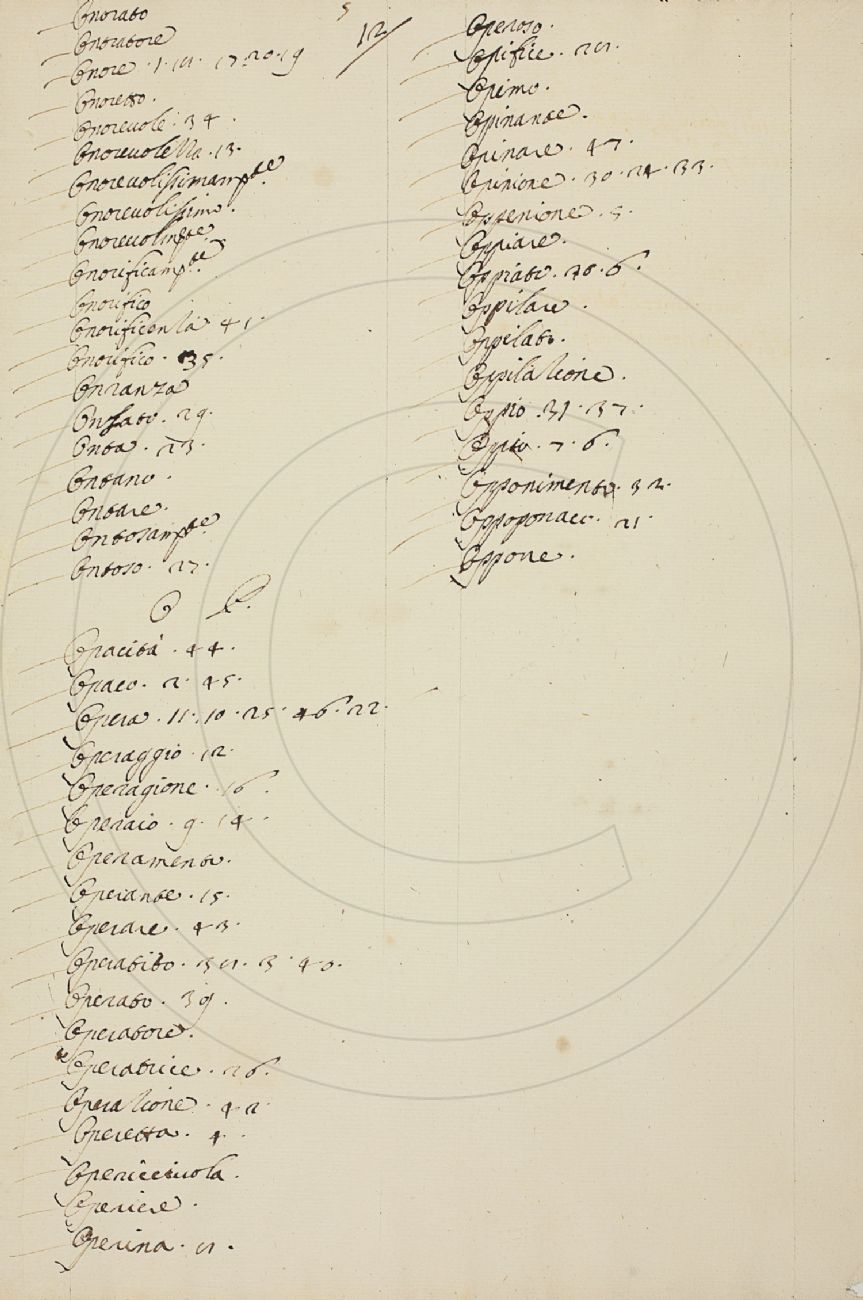 Onorato
Onoratore
Onore
Onoretto.
Onorevole. 34.
Onorevolezza. 13.
Onorevolissimam.te
Onorevolissimo.
Onorevolm.te
Onorificam.te
Onorifico
Onorificenza 41.
Onorifico. 35.
Onranza
Onta. 23.
Ontano.
Ontare.
Ontosam.te
Ontoso. 27.
O P.
Opacità. 44.
Opaco. 2. 45.
Opera. 11. 10. 25. 46. 22.
Operaggio. 12.
Operagione. 16.
Operaio. 9. 14.
Operamento.
Operante. 15.
Operare. 43.
Operato. 39.
Operatore.
Operatrice. 26.
Operazione. 42.
Operetta. 4.
Opericciuola.
Operiere.
Operina.
12
Operoso.
Opifice.
Opimo.
Opinante.
Opinare. 47.
Opinione. 30. 24. 33.
Oppenione. 5.
Oppiare.
Oppiato. 6.
Oppilare.
Oppilato.
Oppilazione.
Oppio. 31. 37.
Oppito. 7. 6.
Opponimento. 32.
Oppoponaco. 21.
Oppore.